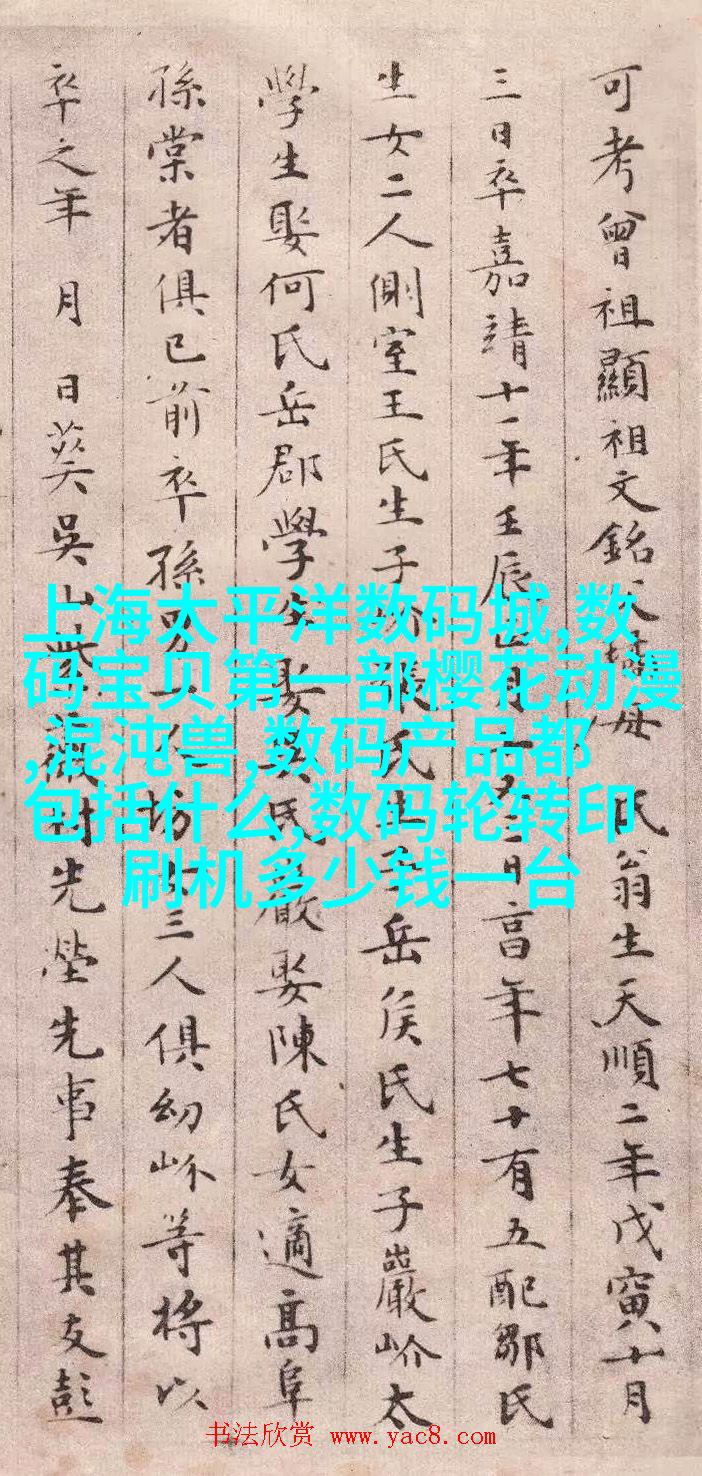 可考曾祖顯祖文銘父母 氏翁生天順二年戊寅十月
三日卒嘉靖十一年壬辰四月日享年七十有五配鄒氏
生女二人側室王氏生子張氏生子岳侯氏生子巖岕太
學生娶何氏岳郡學生娶氏巖娶陳氏女適高阜
孫棠者俱已前卒孫男坊女三人俱幼岕等將以
卒之年 月 日葬吳山紫薇村先塋先事奉其友彭
上海太平洋数码城,数
码宝贝第一部樱花动漫
,混沌兽,数码产品都
包括什么,数码轮转印
刷机多少钱一台
书法欣赏 www.yac8.com